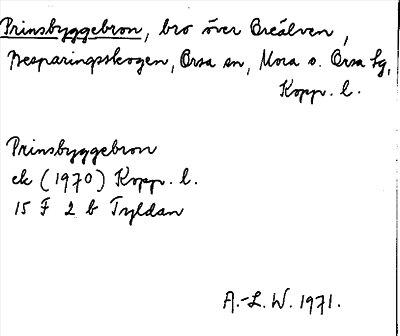 Prinsbyggebron, bro över Oreälven,
Besparingsskogen, Orsa sn, Mora o. Orsa tg,
Kopp. l.
Prinsbyggebron
ek (1970) Kopp. l.
15 F 2 b Tyldan
A.-L. W. 1971.